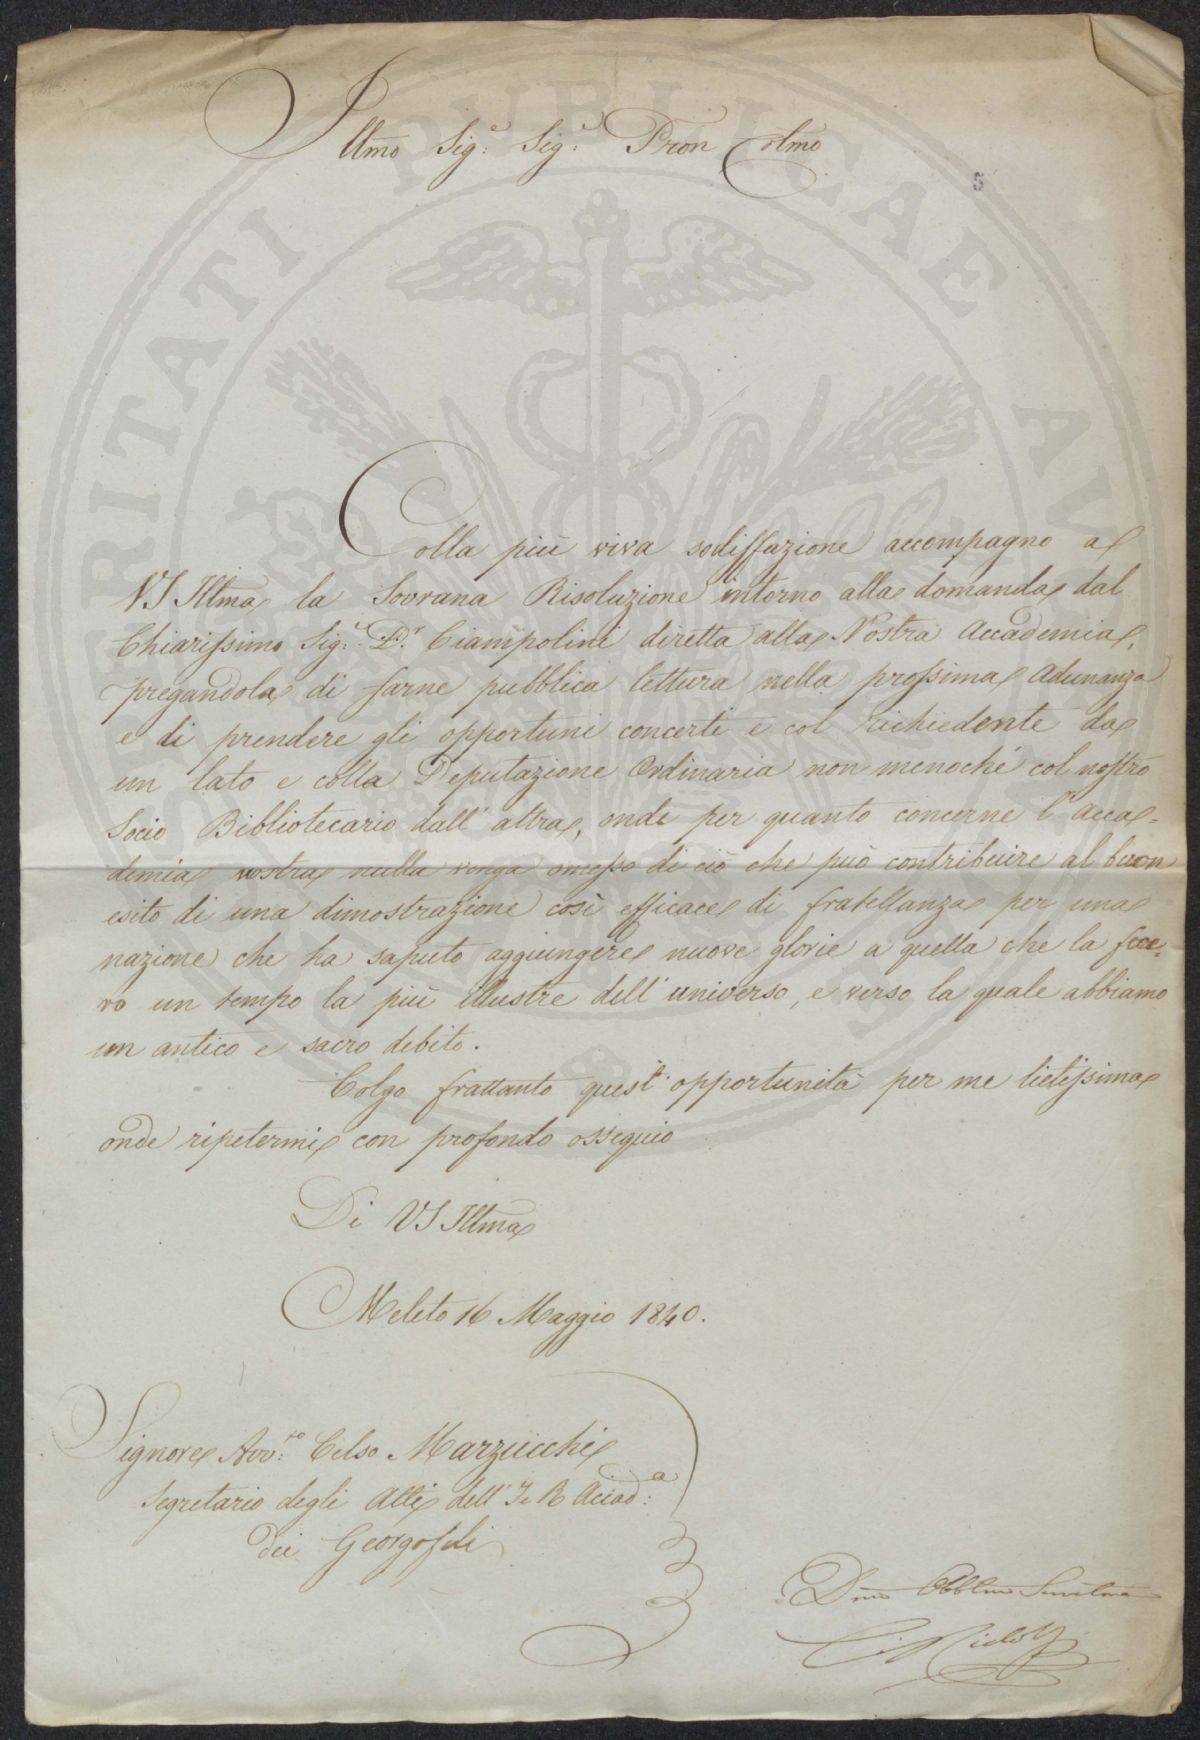 Illmo Sig.e Sig.e Pron Colmo
5
Colla più viva sodisfazione accompagno a
VS Illma la Sovrana Risoluzione intorno alla domanda dal
Chiarissimo Sig.r D.r Ciampolini diretta alla Nostra Accademia,
pregandola di farne pubblica lettura nella prossima Adunanza
e di prendere gli opportuni concerti e col richiedente da
un lato e colla Deputazione Ordinaria non menoché col nostro
Socio Bibliotecario dall'altra, onde per quanto concerne l'Acca=
demia nostra nulla venga omesso di ciò che può contribuire al buon
esito di una dimostrazione così efficace di fratellanza per una
nazione che ha saputo aggiungere nuove glorie a quella che la fece=
ro un tempo la più illustre dell'universo, e verso la quale abbiamo
un antico e sacro debito.
Colgo frattanto quest'opportunità per me lietissima
onde ripetermi con profondo ossequio
Di VS Illma
Meleto 16 Maggio 1840.
Signore Avv.to Celso Marzucchi
Segretario degli Atti dell'I e R Accad.a
dei Georgofili
Dmo Obblmo Servitore
C. Ridolfi
PUBLICAE